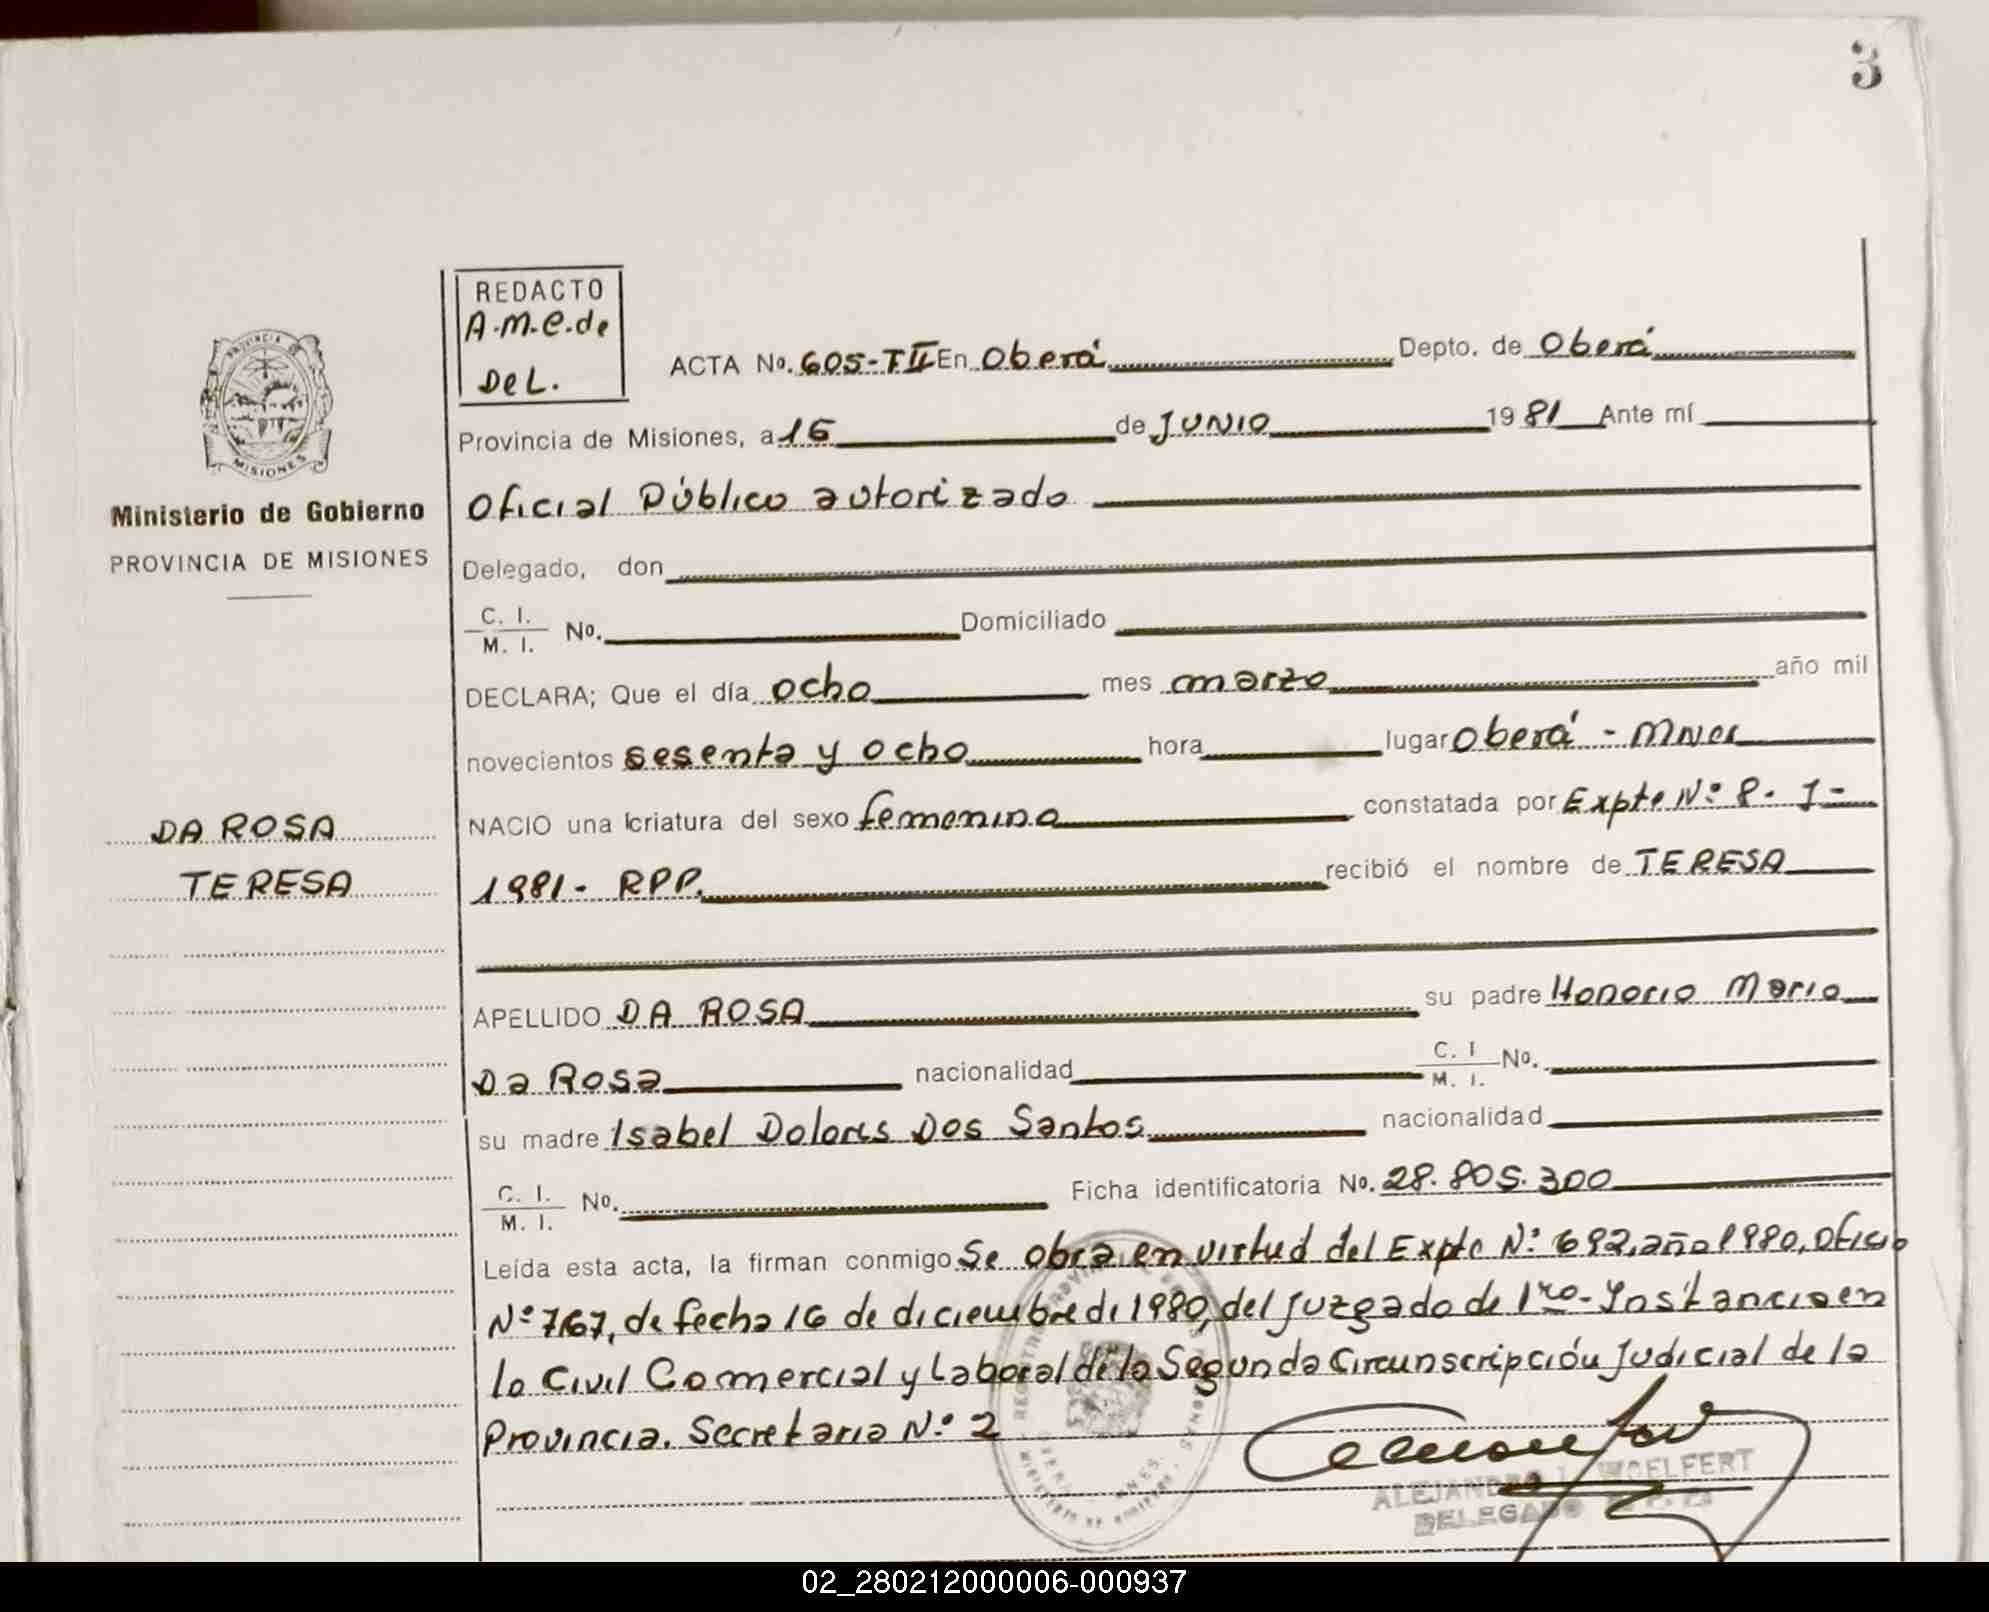 3
REDACTO
A.M.E.de
DeL.
ACTA No. 605-TII En Oberá Depto. de Oberá
Provincia de Misiones, a 16 de JUNIO 1981 Ante mí
Oficial Público autorizado
Ministerio de Gobierno
PROVINCIA DE MISIONES
Delegado, don
C. I.
M. I. No. Domiciliado
DECLARA; Que el día ocho mes marzo año mil
novecientos sesenta y ocho hora lugar Oberá - Mnes
DA ROSA
TERESA
NACIO una criatura del sexo femenino constatada por Expte Nº 8- J-
1981- RPP. recibió el nombre de TERESA
APELLIDO DA ROSA su padre Honorio Mario
Da Rosa nacionalidad C. I
M. I. No.
su madre Isabel Dolores Dos Santos nacionalidad
C. I.
M. I. No. Ficha identificatoria No. 28.805.300
Leída esta acta, la firman conmigo Se obra en virtud del Expte Nº 692, año 1980, Oficio
Nº 767, de fecha 16 de diciembre de 1980, del Juzgado de 1ra- Instancia en
lo Civil Comercial y Laboral de la Segunda Circunscripción Judicial de la
Provincia. Secretaria Nº 2
ALEJANDRO WOELFERT
DELEGADO
PROVINCIA DE
MISIONES
02_280212000006-000937